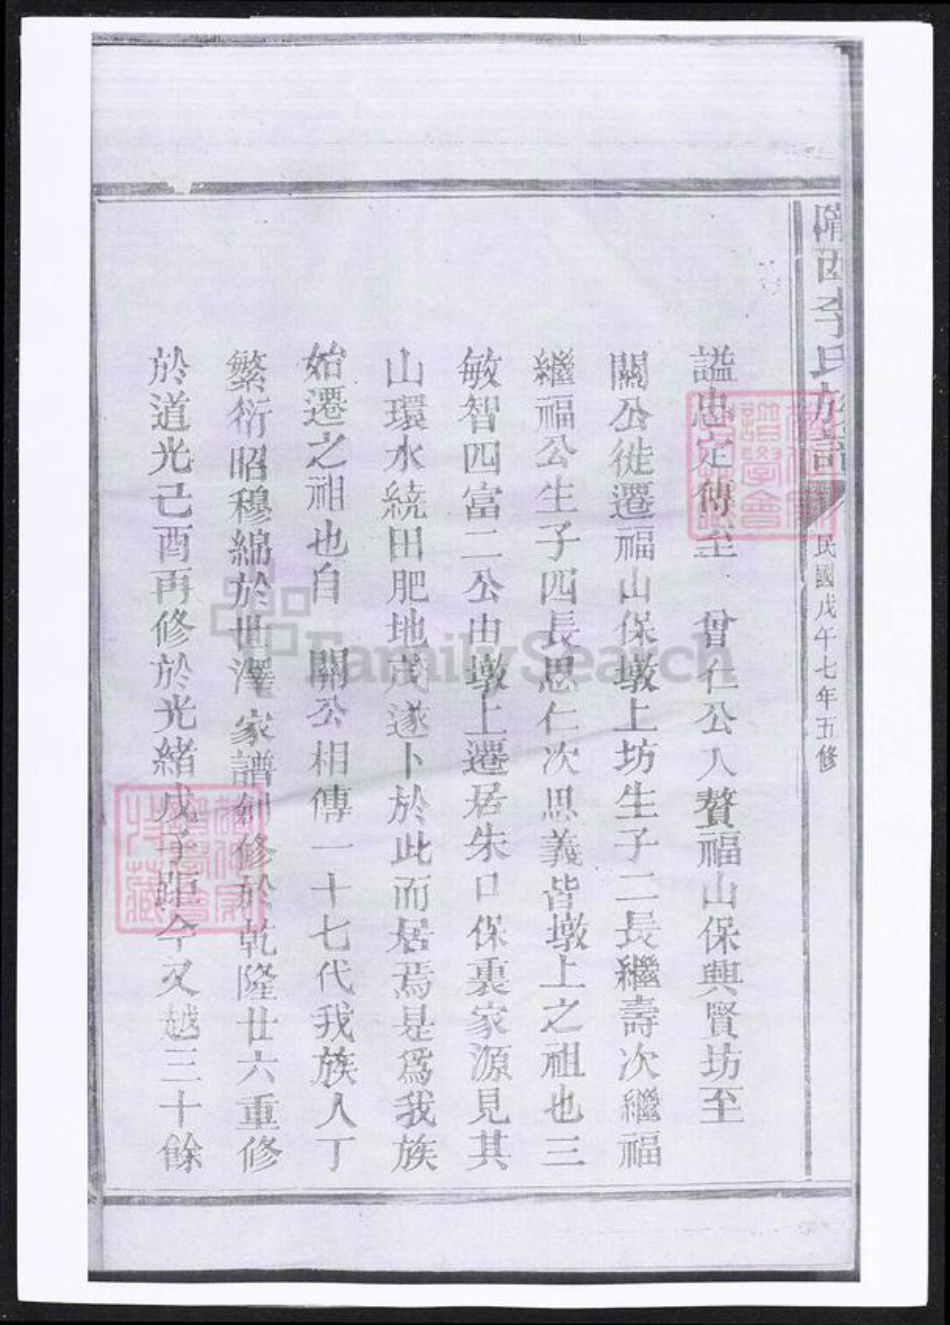 隴西李氏族譜 民國戊午七年五修
謚忠定傳至 曾仁公入贅福山保興賢坊至
關公徙遷福山保墩上坊生子二長繼壽次繼福
繼福公生子四長思仁次思義皆墩上之祖也三
敏智四富二公由墩上遷居朱口保裏家源見其
山環水繞田肥地茂遂卜於此而居焉是爲我族
始遷之祖也自 關公相傳一十七代我族人丁
繁衍昭穆綿於世澤家譜創修於乾隆廿六重修
於道光己酉再修於光緒戊子距今又越三十餘
FamilySearch